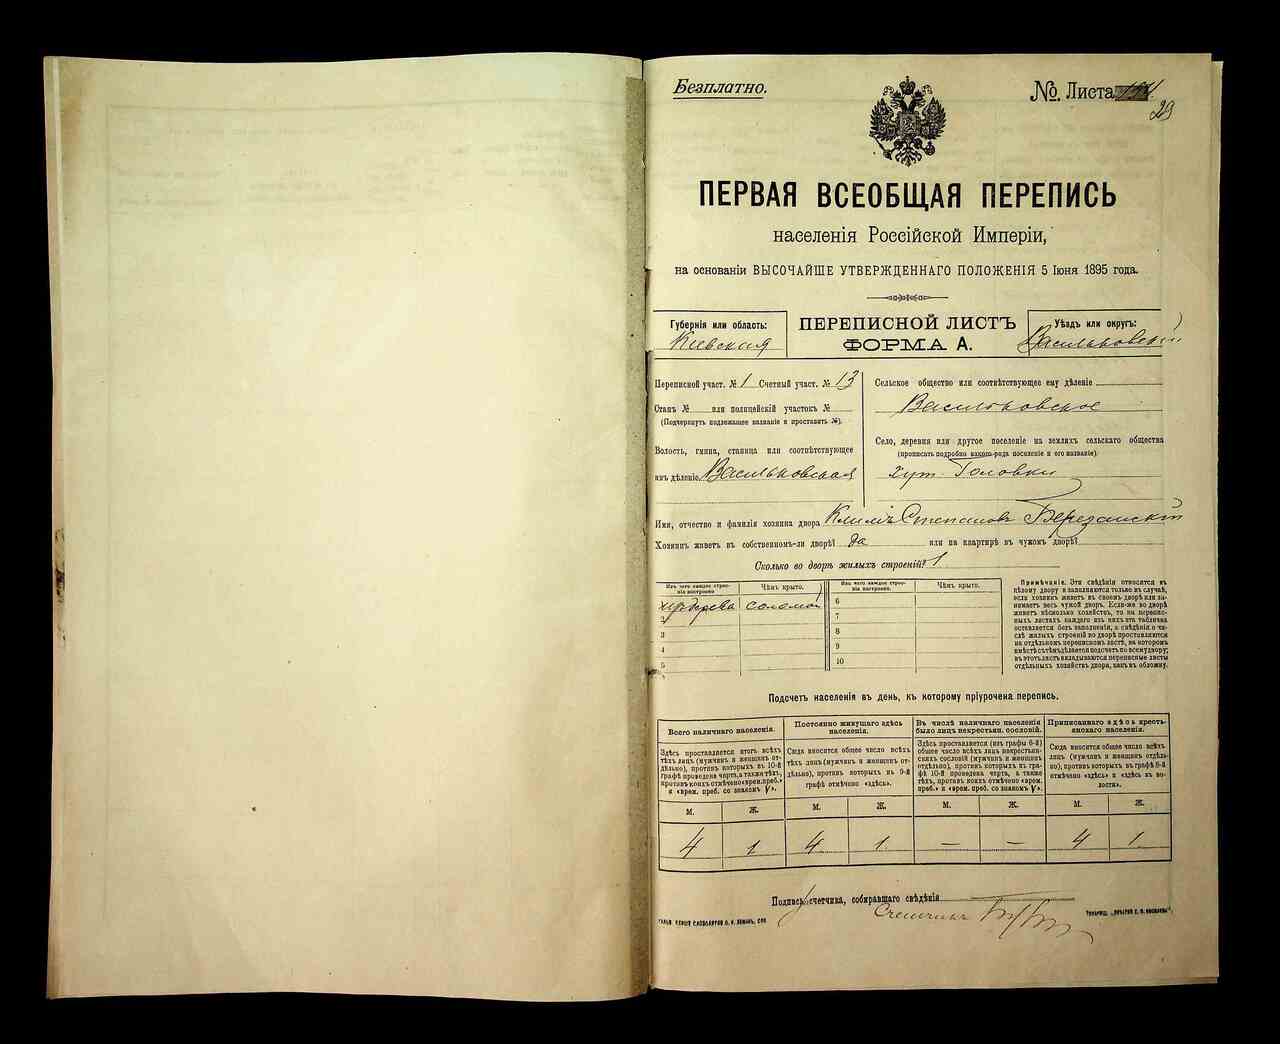 Безплатно.
№. Листа
29
ПЕРВАЯ ВСЕОБЩАЯ ПЕРЕПИСЬ
населенія Россійской Имперіи,
на основаніи ВЫСОЧАЙШЕ УТВЕРЖДЕННАГО ПОЛОЖЕНІЯ 5 Іюня 1895 года.
Губернія или область:
Кіевская
ПЕРЕПИСНОЙ ЛИСТЪ
ФОРМА А.
Уѣздъ или округъ:
Васильковскій
Переписной участ. № 1 Счетный участ. № 13
Станъ № или полицейскій участокъ №
(Подчеркнуть подлежащее названіе и проставить №).
Волость, гмина, станица или соотвѣтствующее
имъ дѣленіе. Васильковская
Сельское общество или соотвѣтствующее ему дѣленіе
Васильковское
Село, деревня или другое поселеніе на земляхъ сельскаго общества
(прописать подробно какого-рода поселеніе и его названіе).
хут. Головки
Имя, отчество и фамилія хозяина двора Климъ Степановъ Березанскій
Хозяинъ живетъ въ собственномъ-ли дворѣ? да или на квартирѣ въ чужомъ дворѣ?
Сколько во дворѣ жилыхъ строеній? 1
Изъ чего каждое строеніе построено
Чѣмъ крыто.
дерева соломой
2
3
4
5
Изъ чего каждое строеніе построено.
Чѣмъ крыто.
6
7
8
9
10
Примѣчаніе. Эти свѣдѣнія относятся къ
цѣлому двору и заполняются только въ случаѣ,
если хозяинъ живетъ въ своемъ дворѣ или занимаетъ
весь чужой дворъ. Если-же во дворѣ
живетъ нѣсколько хозяйствъ, то на переписныхъ
листахъ каждаго изъ нихъ эта табличка
оставляется безъ заполненія, а свѣдѣнія о числѣ
жилыхъ строеній во дворѣ проставляются
на отдѣльномъ переписномъ листѣ, на которомъ
вмѣстѣ съ тѣмъ дѣлается подсчетъ по всему двору;
въ этотъ листъ вкладываются переписные листы
отдѣльныхъ хозяйствъ двора, какъ въ обложку.
Подсчетъ населенія въ день, къ которому пріурочена перепись.
Всего наличнаго населенія.
Здѣсь проставляется итогъ всѣхъ
тѣхъ лицъ (мужчинъ и женщинъ отдѣльно),
противъ которыхъ въ 10-й
графѣ проведена черта, а также тѣхъ,
противъ коихъ отмѣчено «врем. преб.»
и «врем. преб. со знакомъ V».
М. Ж.
4 1
Постоянно живущаго здѣсь
населенія.
Сюда вносится общее число всѣхъ
тѣхъ лицъ (мужчинъ и женщинъ отдѣльно),
противъ которыхъ въ 9-й
графѣ отмѣчено «здѣсь».
М. Ж.
4 1.
Въ числѣ наличнаго населенія
было лицъ некрестьян. сословій.
Здѣсь проставляется (изъ графы 6-й)
общее число всѣхъ лицъ некрестьянскихъ
сословій (мужчинъ и женщинъ
отдѣльно), противъ которыхъ въ графѣ
10-й проведена черта, а также
тѣхъ, противъ коихъ отмѣчено «врем.
преб.» и «врем. преб. со знакомъ V».
М. Ж.
— —
Приписаннаго здѣсь крестьянскаго
населенія.
Сюда вносится общее число всѣхъ
лицъ (мужчинъ и женщинъ отдѣльно),
противъ которыхъ въ графѣ 8-й
отмѣчено «здѣсь» и «здѣсь въ волости».
М. Ж.
4 1.
Подпись счетчика, собиравшаго свѣдѣнія
Счетчикъ